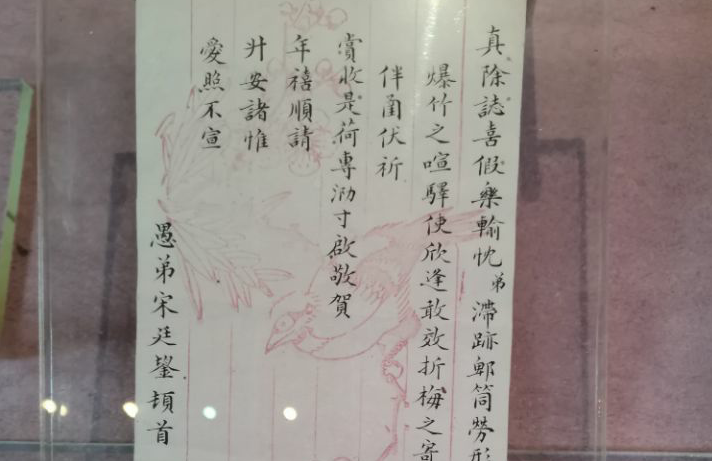 真除誌喜假樂輸忱弟滯跡郵筒勞形
爆竹之喧驛使欣逢敢效折梅之寄
伴函伏祈
賞收是荷專泐寸啟敬賀
年禧順請
升安諸惟
愛照不宣
愚弟宋廷鋆頓首